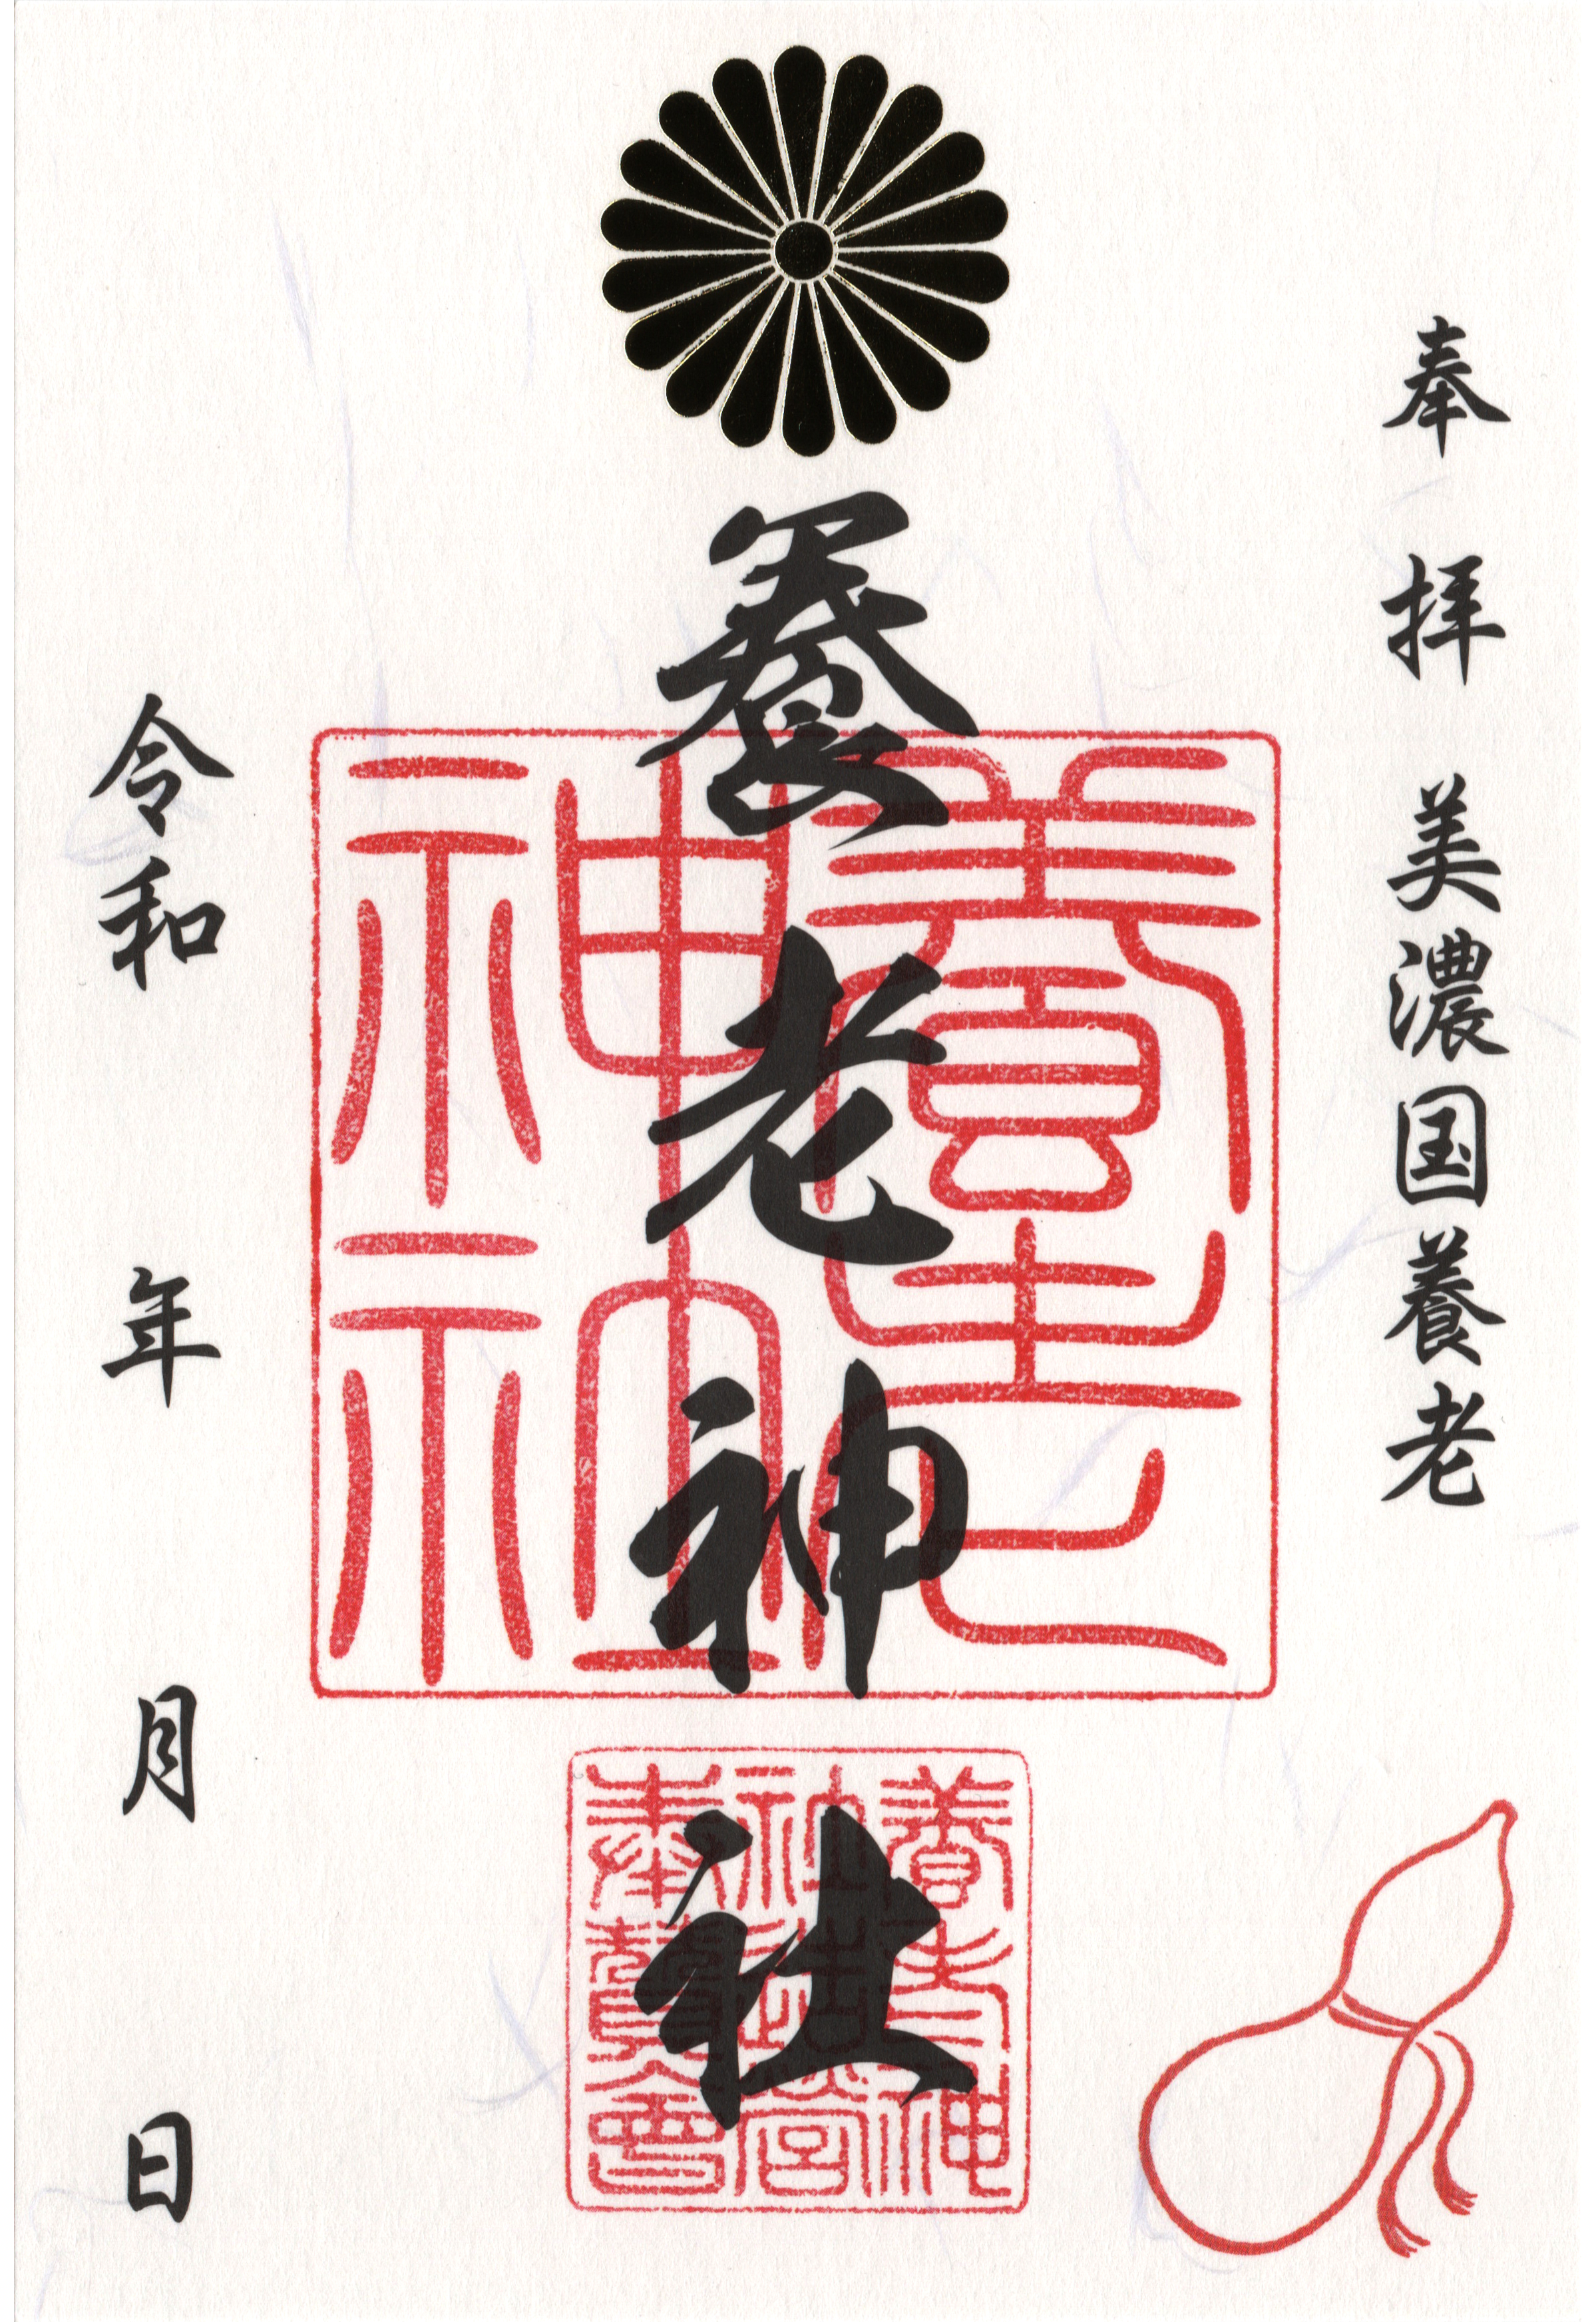 奉拝 美濃国養老
養老神社
養老神社
養老神
社造営
奉賛会
令和 年 月 日